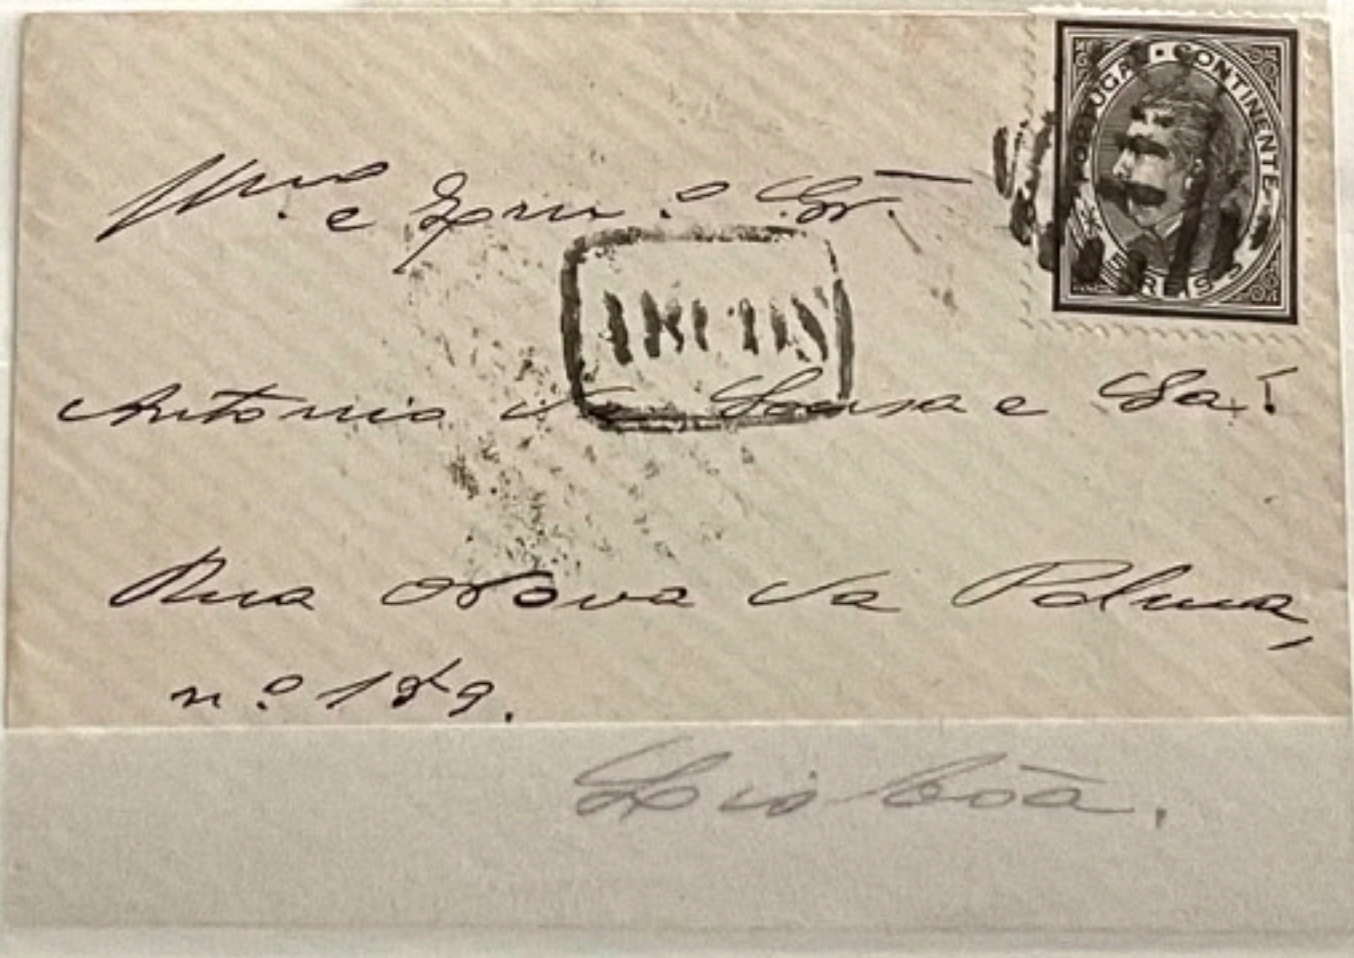 PORTUGAL · CONTINENTE
5 REIS 5
Illmo. e Exmo. Sr.
Antonio de Sousa e Sá!
Rua Nova da Palma,
n.º 189.
Lisbôa.